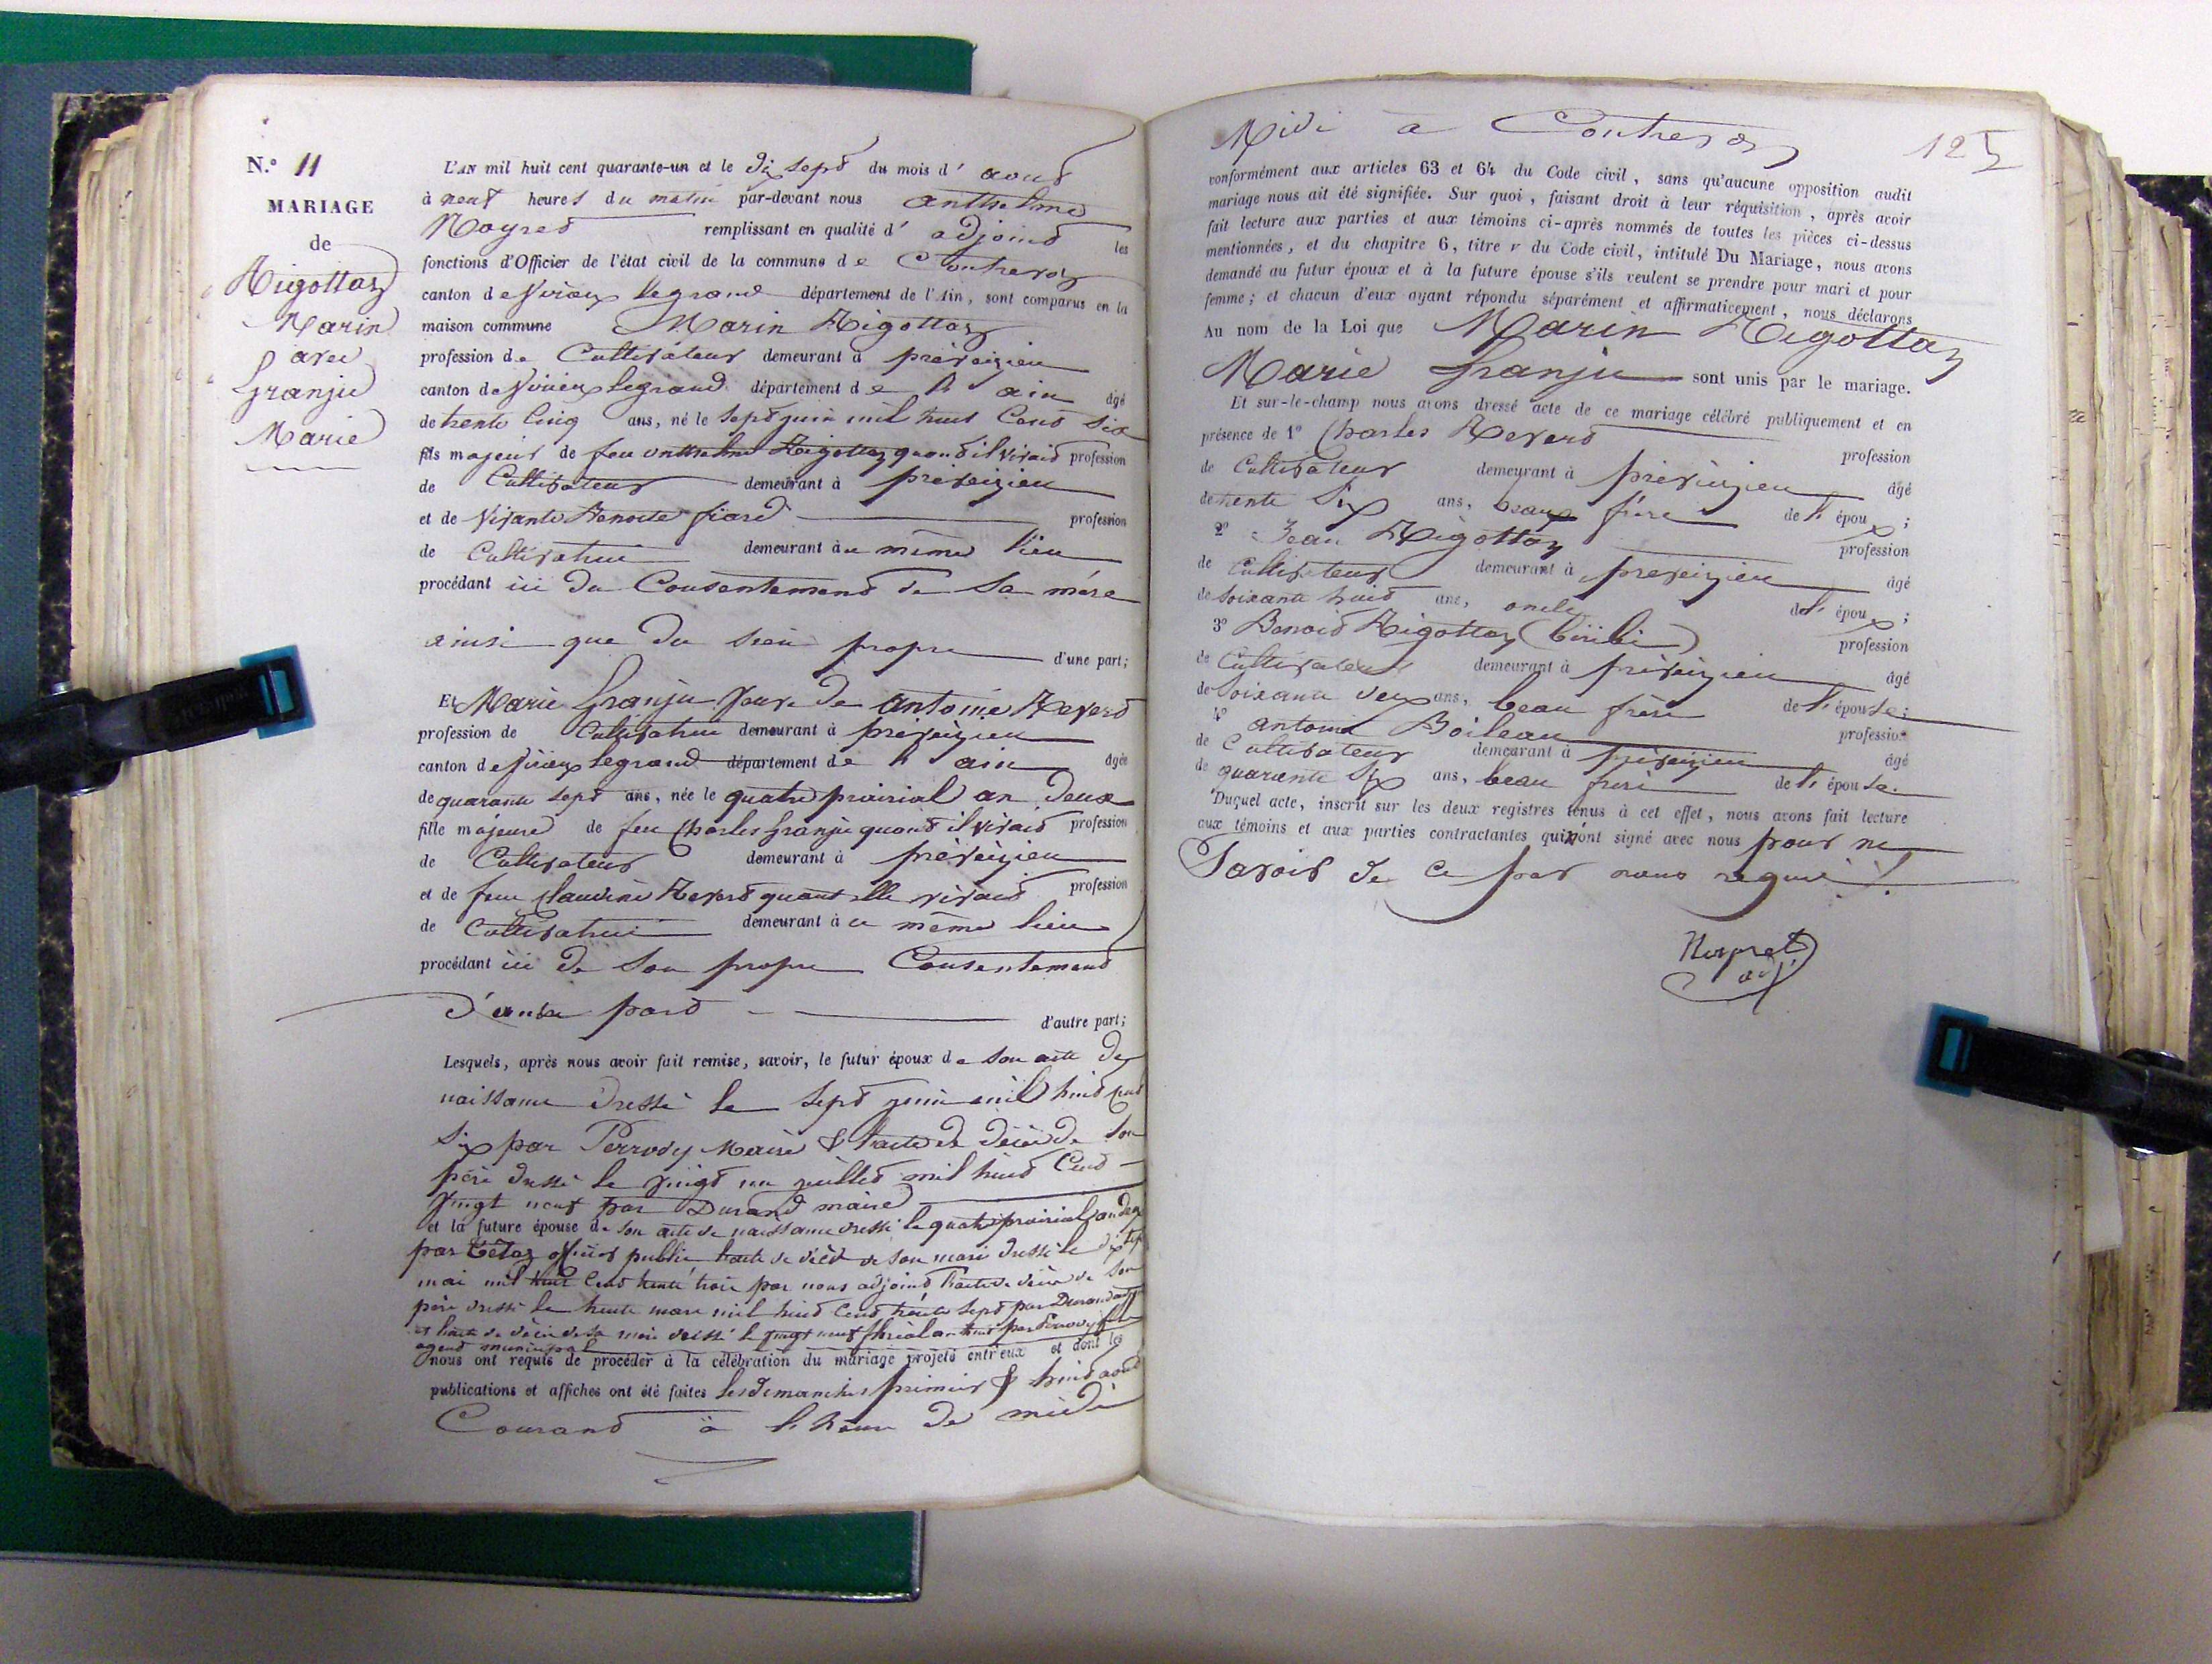 N.° 11
MARIAGE
de
Rigottaz
Marin
avec
Granju
Marie
L'AN mil huit cent quarante-un et le dix sept du mois d' aout
à neuf heures du matin par-devant nous anthelme
remplissant en qualité d' adjoint les
fonctions d'Officier de l'état civil de la commune de Contrevoz
canton de Virieux legrand département de l'Ain, sont comparus en la
maison commune Marin Rigottaz
profession de Cultivateur demeurant à préveizieu
canton de Virieux legrand département de l' ain âgé
de trente cinq ans, né le sept juin mil huit Cent six
fils majeur de feu anthelme Rigottaz quand il vivait profession
de Cultivateur demeurant à préveizieu
et de vivante Benoite fiard profession
de Cultivatrice demeurant à u même lieu
procédant ici du Consentement de Sa mére
ainsi que du sien propre d'une part;
Et Marie Granju veuve de antoine Reverd
profession de Cultivatrice demeurant à préveizieu
canton de Virieux legrand département de l' ain âgée
de quarante sept ans, née le quatre prairial an deux
fille majeure de feu Charles Granju quand il vivait profession
de Cultivateur demeurant à préveizieu
et de feue Claudine Reverd quant elle vivait profession
de Cultivatrice demeurant à u même lieu
procédant ici de Son propre Consentement
d'autre part d'autre part;
Lesquels, après nous avoir fait remise, savoir, le futur époux de Son acte de
naissance dressé le Sept juin mil huit cent
Six par Perrody Maire & l'acte de décès de Son
père dressé le vingt un juillet mil huit Cent
vingt neuf par Durand maire
et la future épouse de Son acte de naissance dressé le quatre prairial an deux
par officier public l'acte de décès de son mari dressé le dix sept
mai mil huit Cent trente trois par nous adjoint l'acte de décès de Son
père dressé le trente mars mil huit Cent trente Sept par Durand
et l'acte de décès de Sa mère dressé le vingt neuf floréal an huit par Perrody
agent municipal
nous ont requis de procéder à la célébration du mariage projeté entr'eux et dont les
publications et affiches ont été faites les dimanches premier & huit aout
Courant à l'heure de midi
Midi à Contrevoz
125
conformément aux articles 63 et 64 du Code civil, sans qu'aucune opposition audit
mariage nous ait été signifiée. Sur quoi, faisant droit à leur réquisition, après avoir
fait lecture aux parties et aux témoins ci-après nommés de toutes les pièces ci-dessus
mentionnées, et du chapitre 6, titre V du Code civil, intitulé Du Mariage, nous avons
demandé au futur époux et à la future épouse s'ils veulent se prendre pour mari et pour
femme; et chacun d'eux ayant répondu séparément et affirmativement, nous déclarons
Au nom de la Loi que Marin Rigottaz
Marie Granju sont unis par le mariage.
Et sur-le-champ nous avons dressé acte de ce mariage célébré publiquement et en
présence de 1° Charles Reverd profession
de Cultivateur demeurant à préveizieu âgé
de trente Six ans, beaux frère de l' époux;
2° Jean Rigottaz profession
de Cultivateur demeurant à préveizieu âgé
de Soixante huit ans, oncle de l' époux;
3° Benoit Rigottaz profession
de Cultivateur demeurant à préveizieu âgé
de Soixante deux ans, beau frère de l' épouse;
4° antoine Boileau profession
de Cultivateur demeurant à préveizieu âgé
de quarante Six ans, beau frère de l' épouse.
Duquel acte, inscrit sur les deux registres tenus à cet effet, nous avons fait lecture
aux témoins et aux parties contractantes qui n'ont signé avec nous pour ne
Savoir de ce par nous requis.
adj